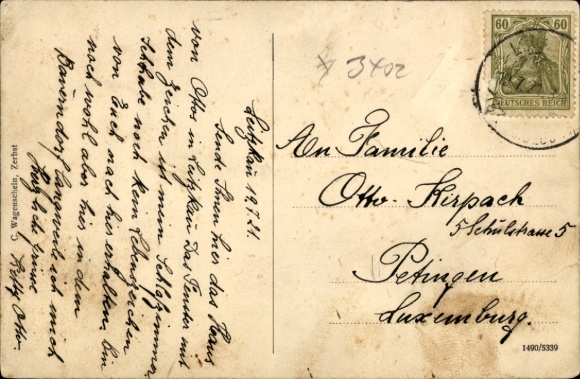 Leitzkau 19.7.21.
Sende Ihnen hier das Haus
von Ottos in Leitzkau Das Fenster mit
dem Zeichen ist mein Schlafzimmer
Ich habe noch kein Lebenszeichen
von Euch nach hier erhalten. Bin
noch wohl aber hier in dem
Bauerndorf langweile ich mich
Otto
C. Wagenschein, Zerbst
3402
60 60
DEUTSCHES REICH
An Familie
Otto-Kirpach
5 Schulstrasse 5
Petingen
Luxemburg.
1490/5339